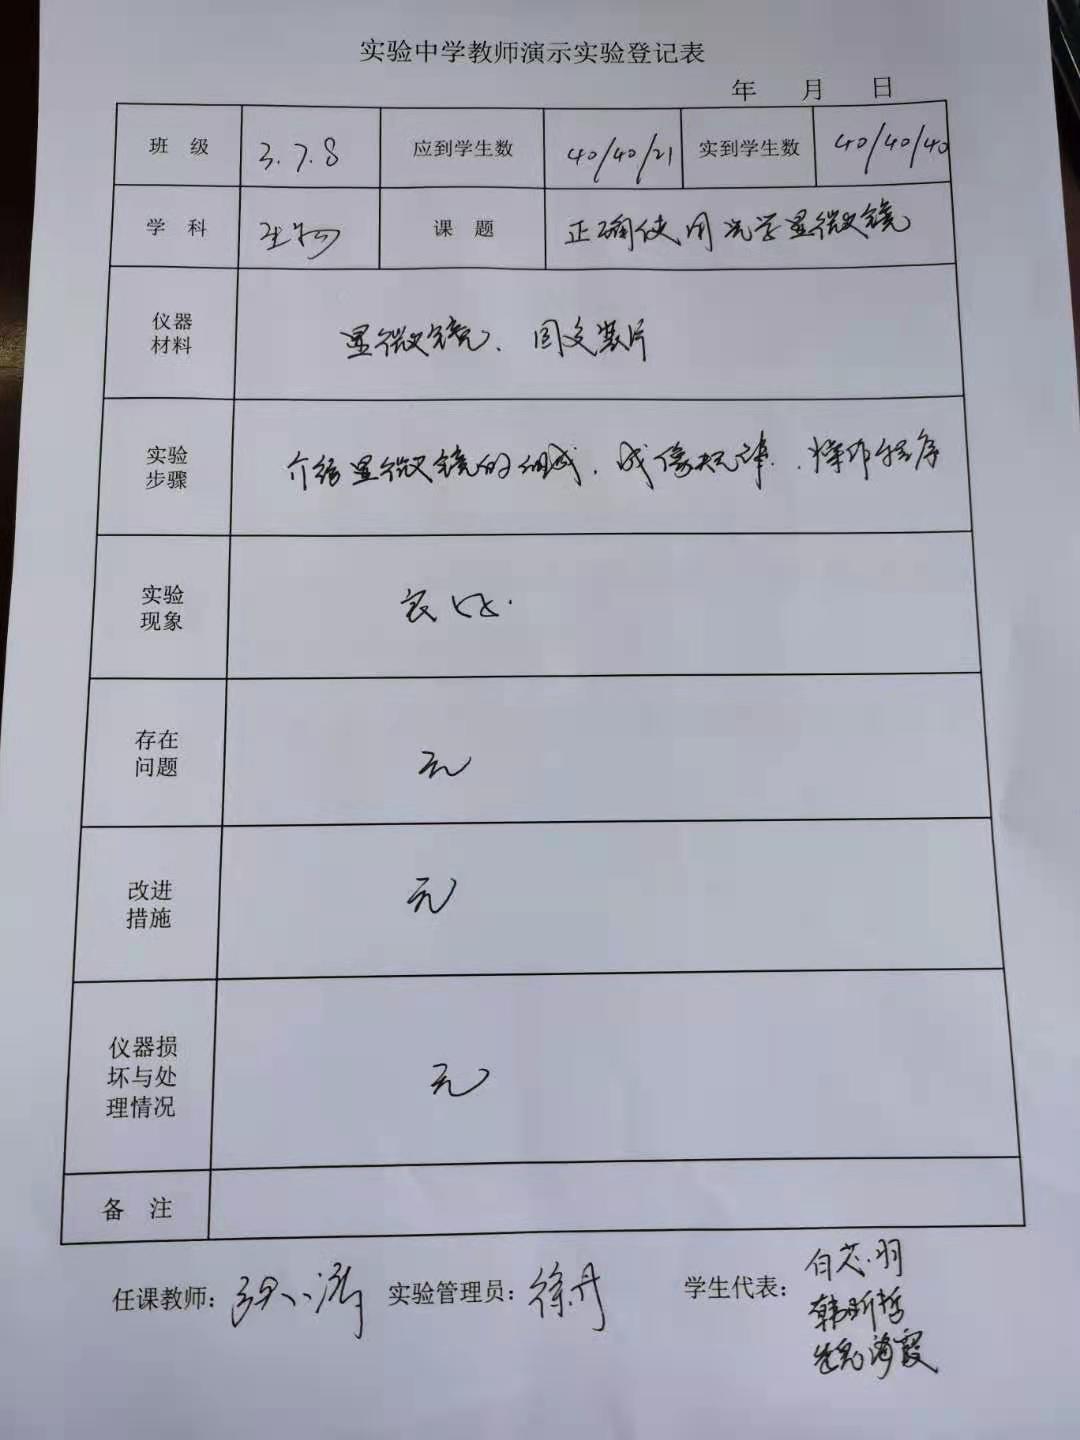 实验中学教师演示实验登记表
年 月 日
班 级 3.7.8 应到学生数 40/40/21 实到学生数 40/40/40
学 科 生物 课 题 正确使用光学显微镜
仪器
材料
显微镜、固定装片
实验
步骤
介绍显微镜的组成、成像规律、操作程序
实验
现象
良好.
存在
问题
无
改进
措施
无
仪器损
坏与处
理情况
无
备 注
任课教师: 实验管理员: 徐丹 学生代表: 白芯羽
韩昕哲
海霞